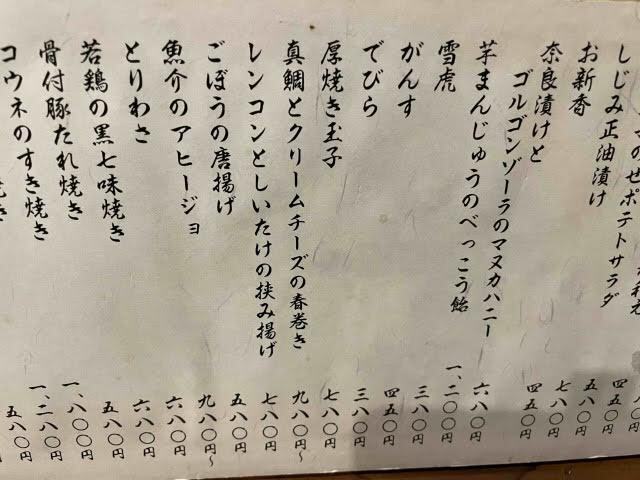 のせポテトサラダ
しじみ正油漬け
お新香
奈良漬けと
ゴルゴンゾーラのマヌカハニー
芋まんじゅうのべっこう餡
雪虎
がんす
でびら
厚焼き玉子
真鯛とクリームチーズの春巻き
レンコンとしいたけの挟み揚げ
ごぼうの唐揚げ
魚介のアヒージョ
とりわさ
若鶏の黒七味焼き
骨付豚たれ焼き
コウネのすき焼き
八〇円
四五〇円
五八〇円
七八〇円
四五〇円
六八〇円
一、二〇〇円
三八〇円
四五〇円
三八〇円
七八〇円
九八〇円〜
七八〇円
五八〇円
九八〇円〜
六八〇円
六八〇円
五八〇円
一、八〇〇円
一、二八〇円
五八〇円